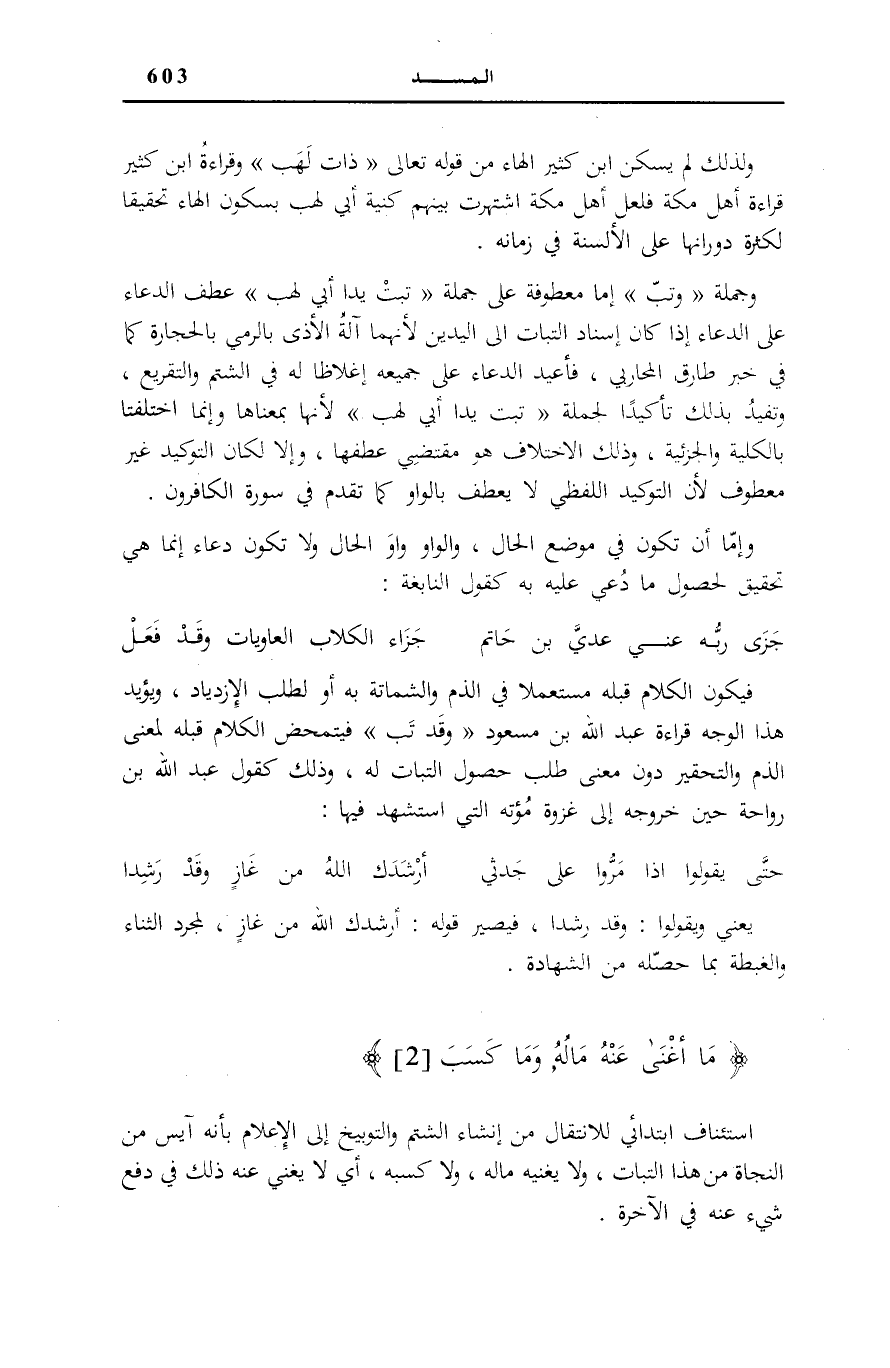 المســـد 603
ولذلك لم يسكن ابن كثير الهاء من قوله تعالى « ذات لَهَب » وقراءةُ ابن كثير
قراءة أهل مكة فلعل أهل مكة اشتهرت بينهم كنية أبي لهب بسكون الهاء تحقيقا
لكثرة دورانها على الألسنة في زمانه .
وجملة « وتبّ » إما معطوفة على جملة « تبتْ يدا أبي لهب » عطف الدعاء
على الدعاء إذا كان إسناد التبات الى اليدين لأنهما آلةُ الأذى بالرمي بالحجارة كما
في خبر طارق المحاربي ، فأعيد الدعاء على جميعه إغلاظا له في الشتم والتقريع ،
وتفيدُ بذلك تأكيدًا لجملة « تبت يدا أبي لهب » لأنها بمعناها وإنما اختلفتا
بالكلية والجزئية ، وذلك الاختلاف هو مقتضِي عطفها ، وإلا لكان التوكيد غير
معطوف لأن التوكيد اللفظي لا يعطف بالواو كما تقدم في سورة الكافرون .
وإمّا أن تكون في موضع الحال ، والواو واوَ الحال ولا تكون دعاء إنما هي
تحقيق لحصول ما دُعي عليه به كقول النابغة :
جَزَى ربُّـه عنـــي عديَّ بن حَاتم جَزَاء الكلاب العاويات وقَـدْ فَعَـلْ
فيكون الكلام قبله مستعملا في الذم والشماتة به أو لطلب الإزدياد ، ويؤيد
هذا الوجه قراءة عبد الله بن مسعود « وقَد تَب » فيتمحض الكلام قبله لمعنى
الذم والتحقير دون معنى طلب حصول التبات له ، وذلك كقول عبد الله بن
رواحة حين خروجه إلى غزوة مُؤته التي استشهد فيها :
حتَّى يقولوا اذا مَرُّوا على جَدثي أرْشَدَك اللهُ من غَازٍ وقَدْ رَشِدا
يعني ويقولوا : وقد رشدا ، فيصير قوله : أرشدك الله من غازٍ ، لمجرد الثناء
والغبطة بما حصّله من الشهادة .
﴿ مَا أَغْنَىٰ عَنْهُ مَالُهُۥ وَمَا كَسَبَ [2] ﴾
استئناف ابتدائي للانتقال من إنشاء الشتم والتوبيخ إلى الإعلام بأنه آيس من
النجاة من هذا التبات ، ولا يغنيه ماله ، ولا كسبه ، أي لا يغني عنه ذلك في دفع
شيء عنه في الآخرة .